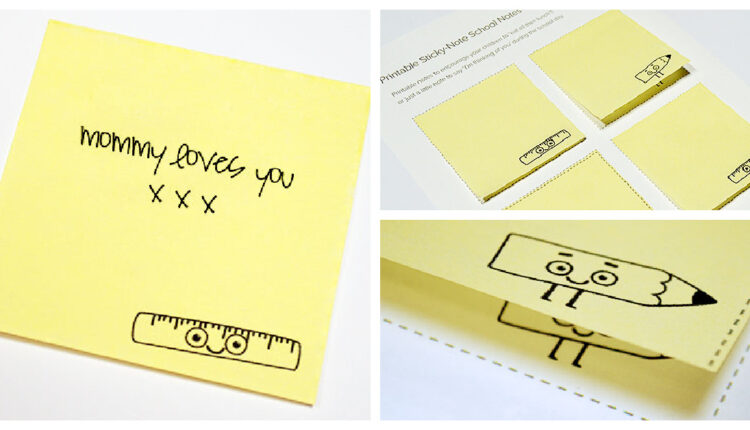 mommy loves you
x x x
Printable Sticky-Note School Notes
Printable notes to encourage your children to 'eat all their lunch'!
or just a little note to say 'I'm thinking of you' during the school day.